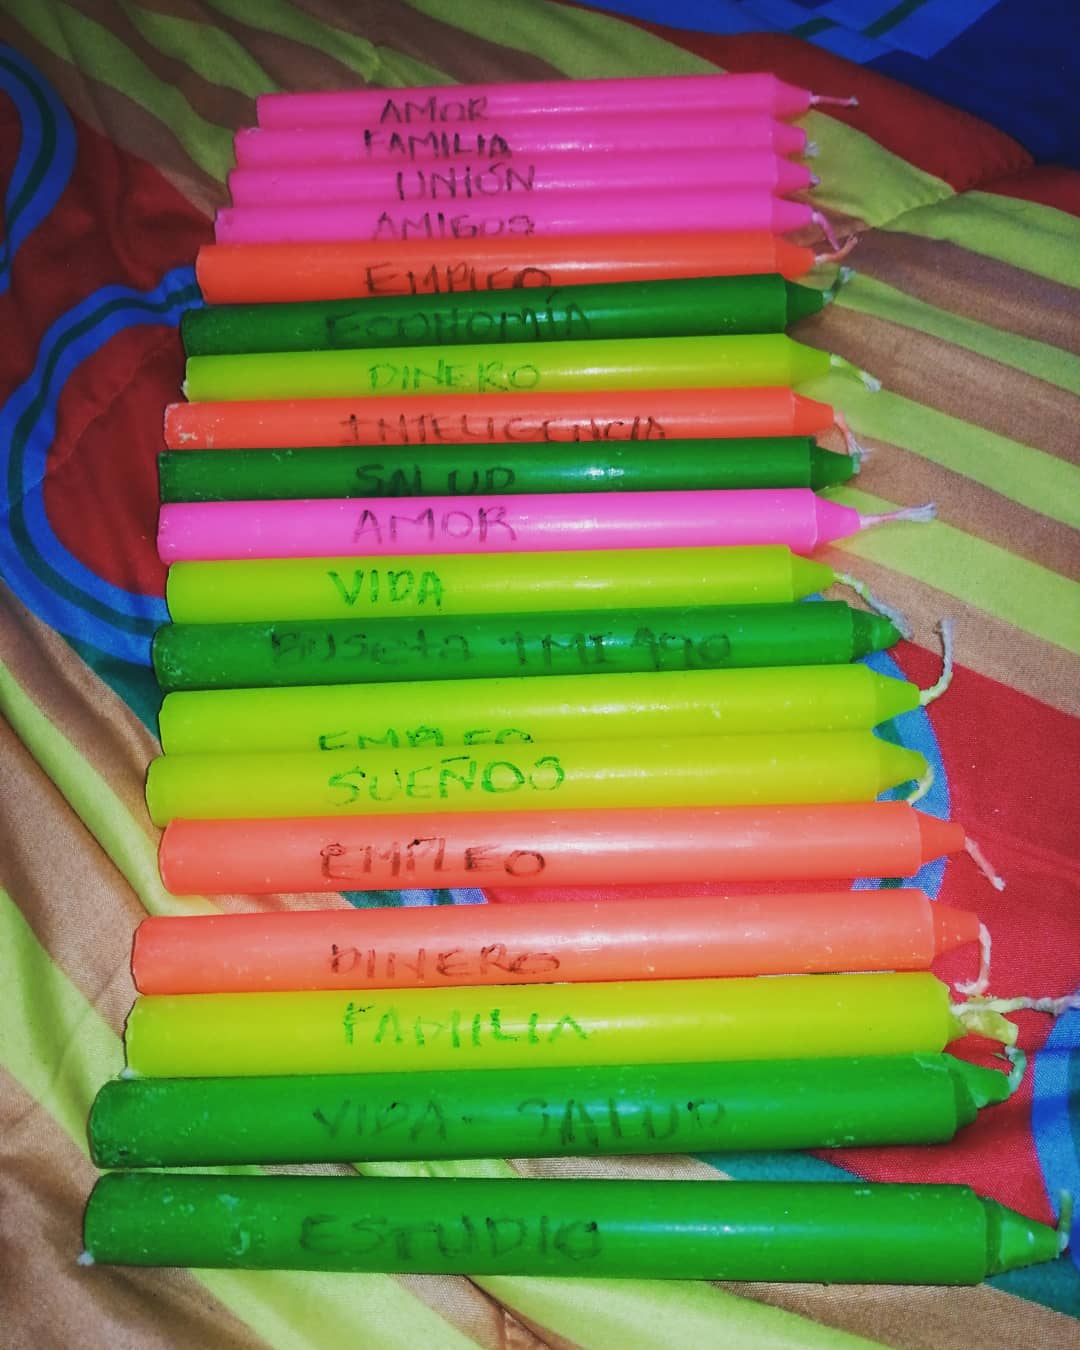 AMOR
FAMILIA
UNIÓN
AMIGOS
EMPLEO
ECONOMÍA
DINERO
INTELIGENCIA
SALUD
AMOR
VIDA
Buseta 1 MI
EMPLEO
SUEÑOS
EMPLEO
DINERO
FAMILIA
VIDA - SALUD
ESTUDIO